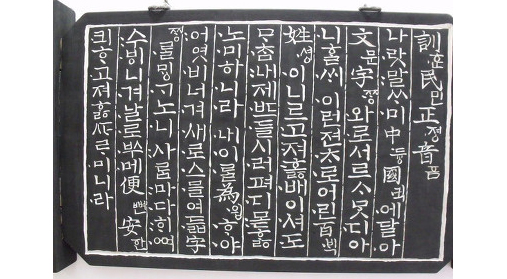 訓훈民민正졍音음
나랏말ᄊᆞ미中듕國귁에달아
文문字ᄍᆞᆼ와로서르ᄉᆞᄆᆞᆺ디아
니ᄒᆞᆯᄊᆡ이런젼ᄎᆞ로어린百ᄇᆡᆨ
姓셩이니르고져호ᇙ배이셔도
ᄆᆞᄎᆞᆷ내제ᄠᅳ들시러펴디몯ᄒᆞᇙ
노미하니라내이ᄅᆞᆯ為윙ᄒᆞ야
어엿비너겨새로스믈여듧字
ᄍᆞᆼᄅᆞᆯᄆᆡᇰᄀᆞ노니사ᄅᆞᆷ마다ᄒᆡᅇᅧ
수ᄫᅵ니겨날로ᄡᅮ메便뼌安한
킈ᄒᆞ고져ᄒᆞᇙᄯᆞᄅᆞ미니라